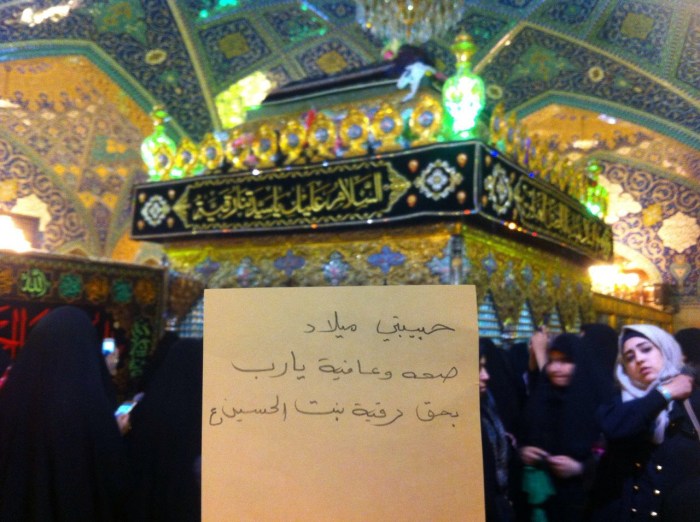 السلام عليك يا سيدتنا رقية
حبيبتي ميلاد
صحه وعافية يارب
بحق رقية بنت الحسين ع